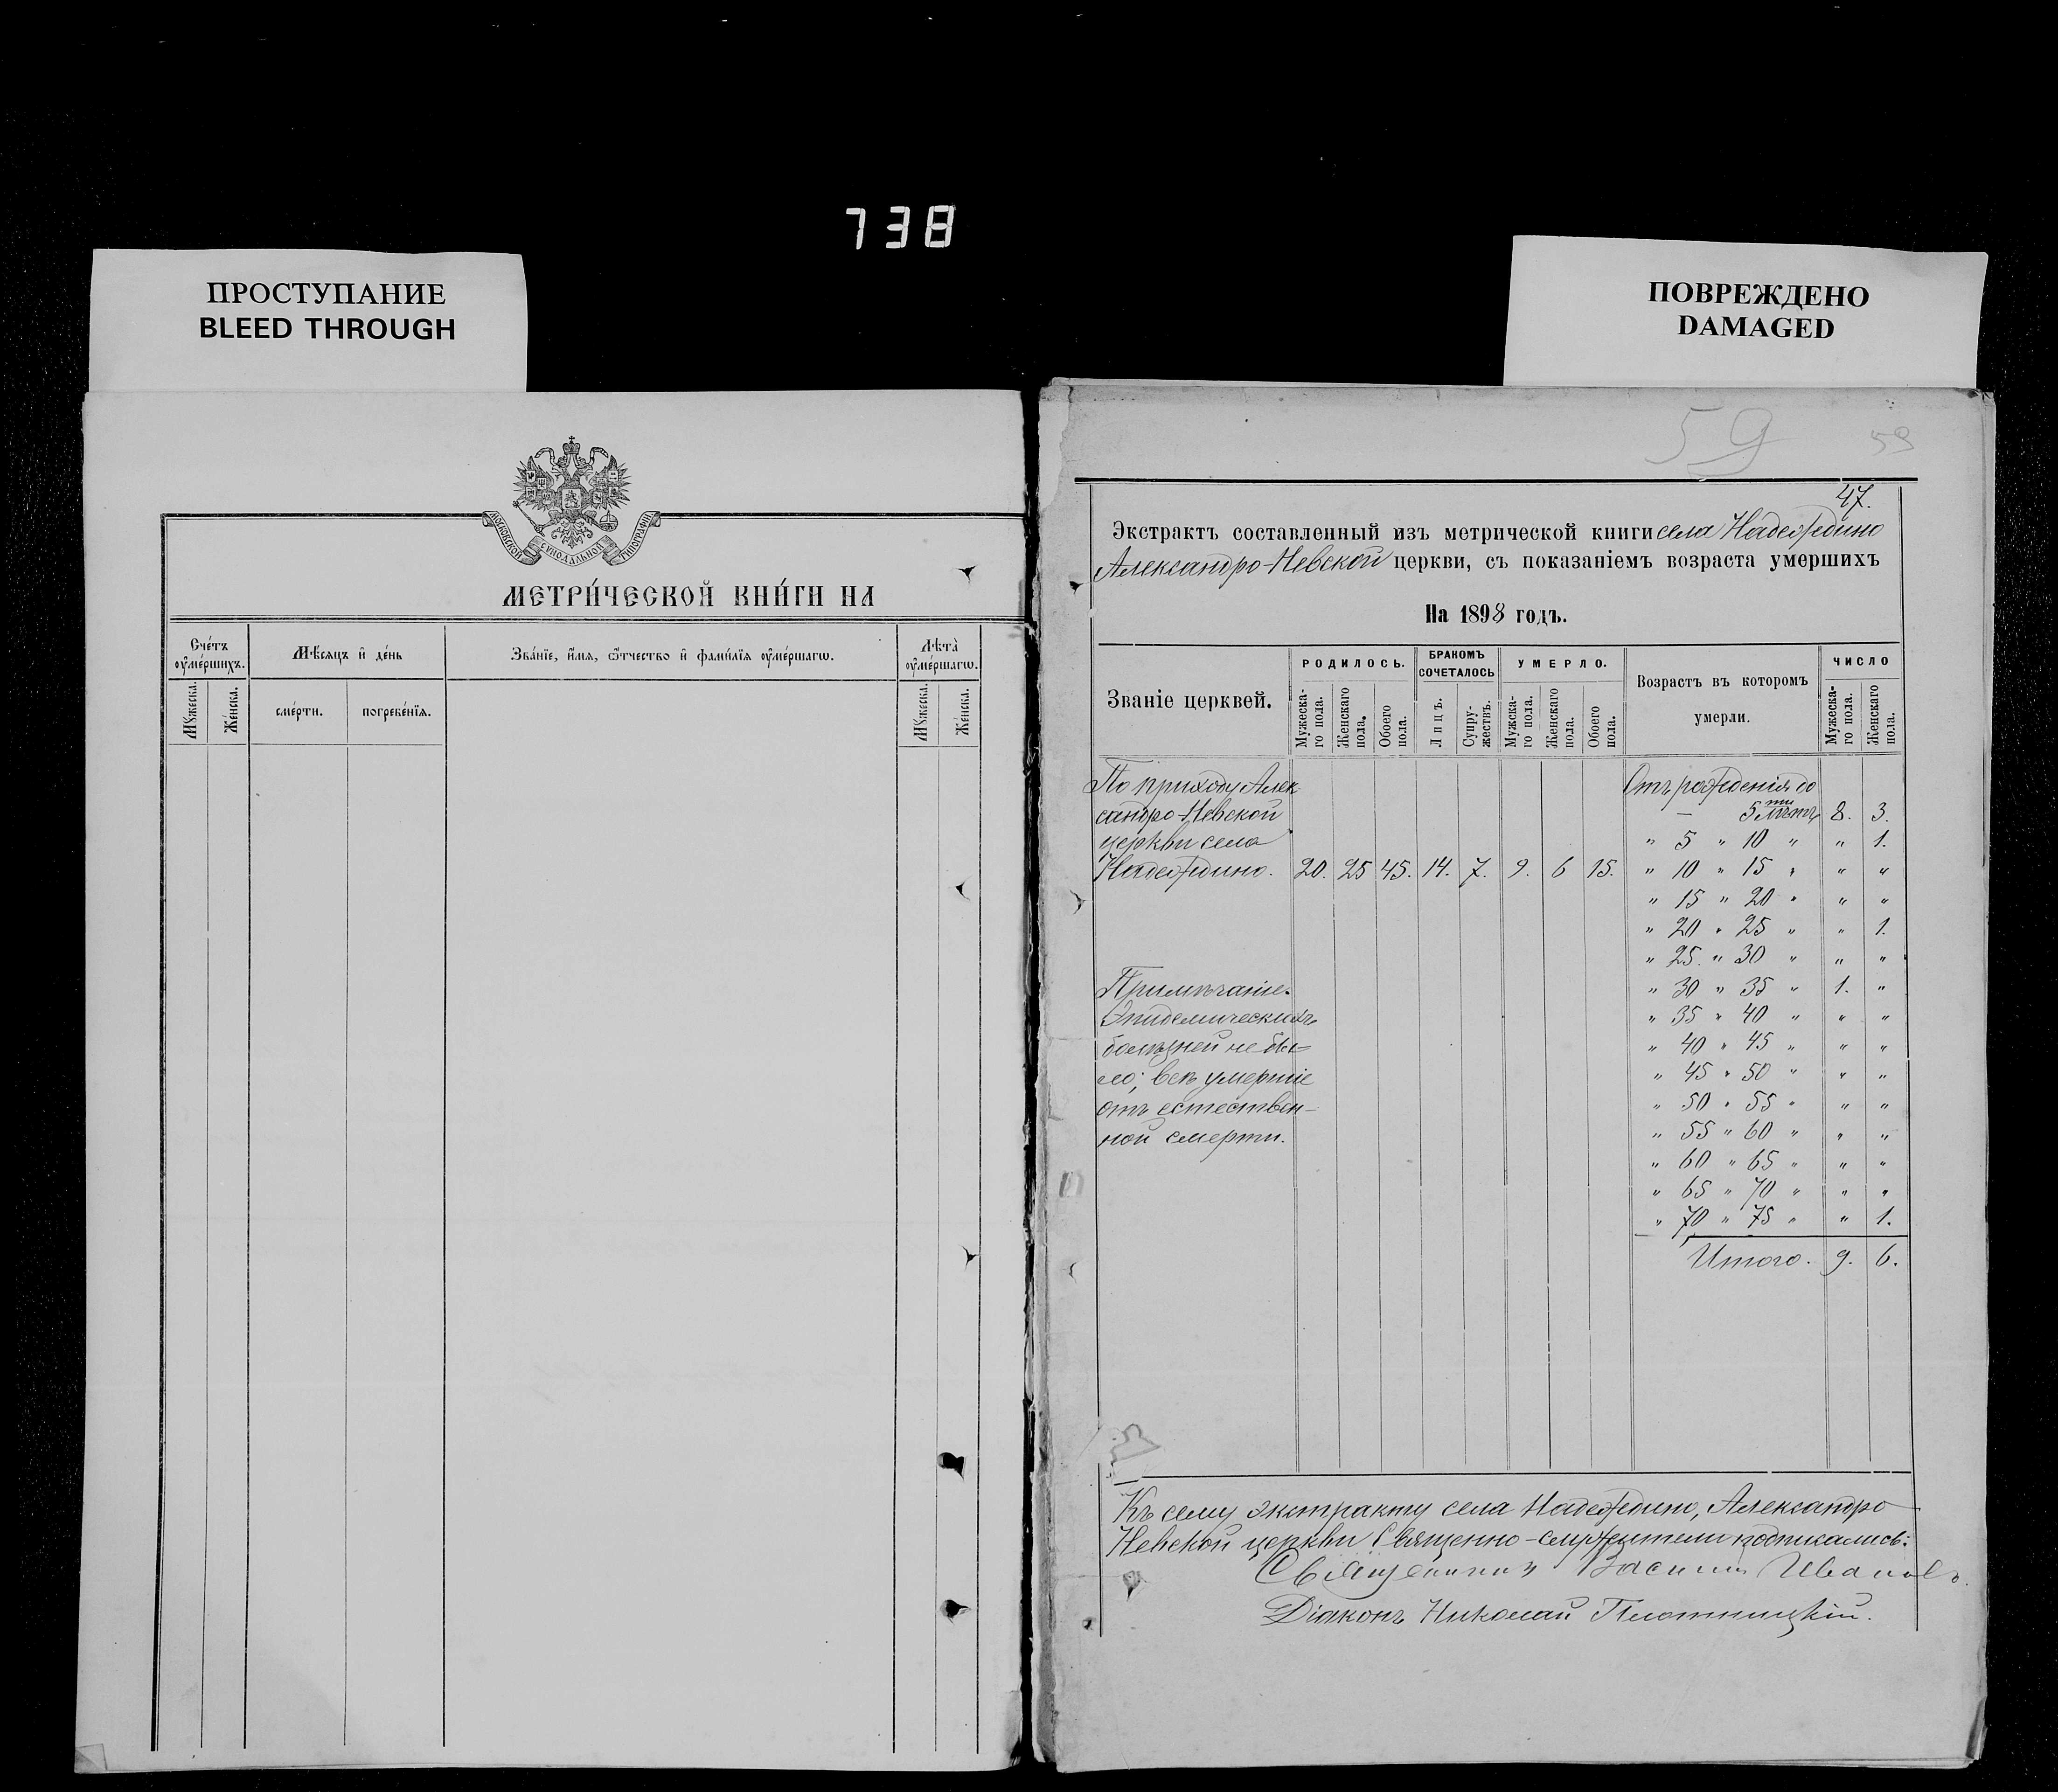 738
ПРОСТУПАНИЕ
BLEED THROUGH
ПОВРЕЖДЕНО
DAMAGED
МОСКОВСКОЙ СѴНОДАЛЬНОЙ ТИПОГРАФІИ
МЕТРИ́ЧЕСКОЙ КНИ́ГИ НА
Сче́тъ оу҆ме́ршихъ.
Мꙋ́жеска.
Же́нска.
Мѣ́сяцъ и҆ де́нь
сме́рти.
погребе́нїѧ.
Зва́нїе, и҆́мѧ, ѻ҆́тчество и҆ фами́лїѧ оу҆ме́ршагѡ.
Лѣ́та оу҆ме́ршагѡ.
Мꙋ́жеска.
Же́нска.
59
59
47.
Экстрактъ составленный изъ метрической книги села Надеждино
Александро-Невской церкви, съ показаніемъ возраста умершихъ
На 1898 годъ.
Званіе церквей.
РОДИЛОСЬ.
Мужеска-го пола.
Женскаго пола.
Обоего пола.
БРАКОМЪ СОЧЕТАЛОСЬ
Лицъ.
Супру-жествъ.
УМЕРЛО.
Мужска-го пола.
Женскаго пола.
Обоего пола.
Возрастъ въ которомъ умерли.
ЧИСЛО
Мужеска-го пола.
Женскаго пола.
По приходу Алек-
сандро-Невской
церкви села
Надеждино. 20. 25 45. 14. 7. 9. 6 15.
Примѣчаніе.
Эпидемическихъ
болѣзней не бы-
ло; всѣ умершіе
отъ естествен-
ной смерти.
Отъ рожденія до
— 5ти лѣтъ 8. 3.
" 5 " 10 " " 1.
" 10 " 15 " " "
" 15 " 20 " " "
" 20 " 25 " " 1.
" 25. " 30 " " "
" 30 " 35 " 1. "
" 35 " 40 " " "
" 40 " 45 " " "
" 45 " 50 " " "
" 50 " 55 " " "
" 55 " 60 " " "
" 60 " 65 " " "
" 65 " 70 " " "
" 70 " 75 " " 1.
Итого. 9. 6.
Къ сему экстракту села Надеждино, Александро
Невской церкви Священно-служители подписались:
Священникъ Василій Ивановъ.
Діаконъ Николай Плотницкій.